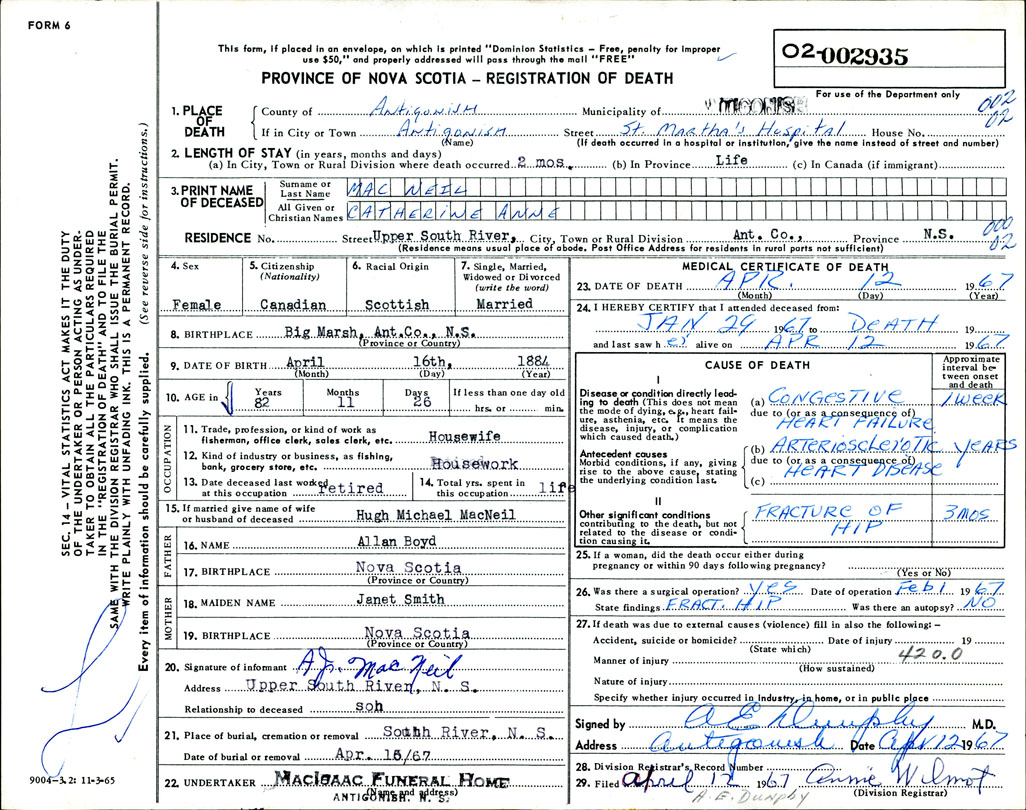 FORM 6
This form, if placed in an envelope, on which is printed "Dominion Statistics – Free, penalty for improper
use $50," and properly addressed will pass through the mail "FREE"
02-002935
PROVINCE OF NOVA SCOTIA – REGISTRATION OF DEATH
For use of the Department only
002
02
1. PLACE OF DEATH
County of Antigonish Municipality of ANTIGONISH
If in City or Town Antigonish Street St. Martha's Hospital House No.
(Name) (If death occurred in a hospital or institution, give the name instead of street and number)
2. LENGTH OF STAY (in years, months and days)
(a) In City, Town or Rural Division where death occurred 2 mos. (b) In Province Life (c) In Canada (if immigrant)
3. PRINT NAME OF DECEASED
Surname or Last Name MAC NEIL
All Given or Christian Names CATHERINE ANNE
000
02
RESIDENCE No. Street Upper South River, City, Town or Rural Division Ant. Co., Province N.S.
(Residence means usual place of abode. Post Office Address for residents in rural parts not sufficient)
4. Sex
Female
5. Citizenship
(Nationality)
Canadian
6. Racial Origin
Scottish
7. Single, Married,
Widowed or Divorced
(write the word)
Married
8. BIRTHPLACE Big Marsh, Ant.Co., N.S.
(Province or Country)
9. DATE OF BIRTH April 16th, 1884
(Month) (Day) (Year)
10. AGE in Years 82 Months 11 Days 26 If less than one day old
hrs. or min.
OCCUPATION
11. Trade, profession, or kind of work as
fisherman, office clerk, sales clerk, etc. Housewife
12. Kind of industry or business, as fishing,
bank, grocery store, etc. Housework
13. Date deceased last worked
at this occupation retired
14. Total yrs. spent in
this occupation life
15. If married give name of wife
or husband of deceased Hugh Michael MacNeil
FATHER
16. NAME Allan Boyd
17. BIRTHPLACE Nova Scotia
(Province or Country)
MOTHER
18. MAIDEN NAME Janet Smith
19. BIRTHPLACE Nova Scotia
(Province or Country)
20. Signature of informant A.J. MacNeil
Address Upper South River, N. S.
Relationship to deceased son
21. Place of burial, cremation or removal South River, N. S.
Date of burial or removal Apr. 15/67
22. UNDERTAKER MACISAAC FUNERAL HOME
(Name and address)
ANTIGONISH. N. S.
MEDICAL CERTIFICATE OF DEATH
23. DATE OF DEATH APR. 12 1967
(Month) (Day) (Year)
24. I HEREBY CERTIFY that I attended deceased from:
JAN 29 1967 to DEATH 19
and last saw her alive on APR 12 1967
CAUSE OF DEATH
Approximate
interval be-
tween onset
and death
I
Disease or condition directly lead-
ing to death (This does not mean
the mode of dying, e.g., heart fail-
ure, asthenia, etc. It means the
disease, injury, or complication
which caused death.)
(a) CONGESTIVE 1 WEEK
due to (or as a consequence of)
HEART FAILURE
Antecedent causes
Morbid conditions, if any, giving
rise to the above cause, stating
the underlying condition last.
(b) ARTERIOSCLEROTIC YEARS
due to (or as a consequence of)
HEART DISEASE
(c)
II
Other significant conditions
contributing to the death, but not
related to the disease or condi-
tion causing it.
FRACTURE OF 3 MOS
HIP
25. If a woman, did the death occur either during
pregnancy or within 90 days following pregnancy?
(Yes or No)
26. Was there a surgical operation? Yes Date of operation Feb 1 1967
State findings FRACT. HIP Was there an autopsy? NO
27. If death was due to external causes (violence) fill in also the following: –
Accident, suicide or homicide? Date of injury 19
(State which) 420.0
Manner of injury
(How sustained)
Nature of injury
Specify whether injury occurred in industry, in home, or in public place
Signed by A E Dunphy M.D.
Address Antigonish Date Apr 12 1967
28. Division Registrar's Record Number
29. Filed April 12 1967 Annie Wilmot
(Division Registrar)
A.E. Dunphy
SEC. 14 – VITAL STATISTICS ACT MAKES IT THE DUTY
OF THE UNDERTAKER OR PERSON ACTING AS UNDER-
TAKER TO OBTAIN ALL THE PARTICULARS REQUIRED
IN THE "REGISTRATION OF DEATH" AND TO FILE THE
SAME WITH THE DIVISION REGISTRAR WHO SHALL ISSUE THE BURIAL PERMIT.
WRITE PLAINLY WITH UNFADING INK. THIS IS A PERMANENT RECORD.
Every item of information should be carefully supplied. (See reverse side for instructions.)
9004-3.2: 11-3-65